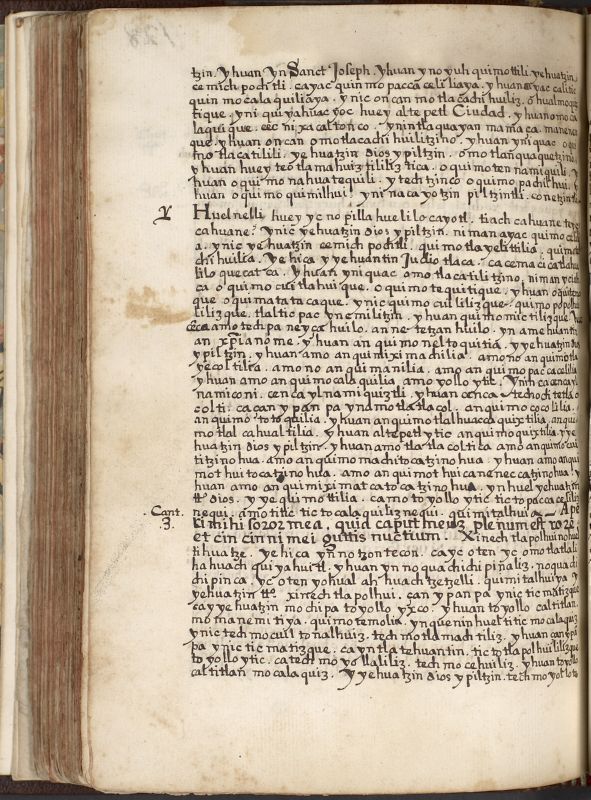 tzin. yhuan yn Sanct Joseph. yhuan yno yuh quimottili. yehuatzin
cemich pochtli. cayac quinmo paccaceliliaya. yhuan ayac calitic
quinmocalaquiliaya. ynic oncan motlacachihuiliz. o hualmoquix
tique, yni quiyahuac yoc huey altepetl Ciudad. yhuan omoca
laquique. ecc nixacaltonco. ynintlaquayan mamaca. manenen
que. yhuan oncan omotlacachihuilitzino. yhuan yniquac oqui
motlacatilili. yehuatzin Dios ypiltzin. omotlanquaquetzino
yhuan huey teotlamahuiztililiztica. oquimotennamiquili. y
huan oquimonahuatequili. ytechtzinco oquimopachilhui. y
huan oquimoquimilhui. yninacayotzin piltzintli. conetzintli
Y Huelnelli huey ycnopillahuelilocayotl. tiachcahuane teyc
cahuane? ynic yehuatzin Dios ypiltzin. nimanayac quimoceli
a. ynic yehuatzin cemich pochtli. quimotlayelittilia. quimote
chihuilia. Yehica yyehuantin Judiotlaca. cacemacicatlahue
lilo quecatca. Yhuan yniquac omotlacatilitzino. niman ycih
ca oquimocuitlahuique. oquimotequitique. yhuan oquitemo
que oquimatatacaque. ynic quimocuililizque. quimopopolhui
lilizque. tlalticpac ynemilitzin. yhuan quimomictilizque. Yece
ceca amotechpaneyçahuilo. annetetzanhuilo. yn amehuantin
an xp̄ianome. yhuan anquimoneltoquitia. yyehuatzin Dios
ypiltzin. yhuan amo anquimiximachilia. amono anquimotla
yecoltilia. amono anquimanilia. amo anquimopaccacelilia
yhuan amo anquimocalaquilia. amoyollo ytic. Ynih ca cenca yl
namiconi. cenca ylnamiquiztli. yhuan cenca techchoctetlao
colti. cacanypanpa yndmotlatlacol. anquimococolilia.
anquimototoquilia. yhuan anquimotlalhuacaquixtilia. anqui
motlalcahualtilia. yhuan altepetl ytic anquimoquixtilia. yye
huatzin Dios ypiltzin. yhuan amotlatlacoltica amo anquimocui
titzinohua. amo anquimomachitocatzinohua. yhuan amo anqui
mothuitocatzinohua. amo anquimothuicanequatzinohua. y
huan amo anquimiximatcatocatzinohua. yn huel yehuatzin
tt.o Dios. yyequimottilia. camotoyolloytic tictopaccaceliliz
nequi. amo titic tictocalaquiliznequi. quimitalhuia. Ape
Cant.
3.
ri mihi soror mea. quid caput meum plenum est rore
et cincinni mei guttis nuctium. Xinechtlapolhui nohuel
tihuatze. yehica yn notzontecon. cayc oten yc omotlatlali
ahuachquiyahuitl. yhuan yn noquachichipinaliz. noquachi
chipinca. yc oten yohualahhuachtzetzelli. quimitalhuiya y
yehuatzin tt.o xinechtlapolhui. canypanpa ynic ticmatizque
cayyehuatzin mochipa toyollo yxco. yhuan toyollo caltitlan.
momanemitiya. quimotemolia. ynquenin huelitic mocalaquiz
ynic techmocuiltonalhuiz. techmotlamachtiliz. yhuan canypan
pa ynic ticmatizque. caynetlatehuantin. tictotlapolhuililizque
toyolloytic. catechmoyollaliliz. techmocehuiliz. yhuan toyollo
caltitlan mocalaquiz. Yyehuatzin Dios ypiltzin. techmoyollotla